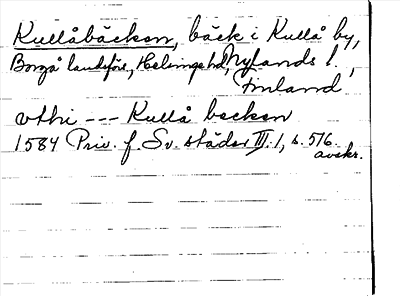 Kullåbäcken, bäck i Kullå by,
Borgå landsförs, Helsinge hd, Nylands l.,
Finland
vthi --- Kullå becken
1584 Priv. f. Sv. städer III:1, s. 516.
avskr.